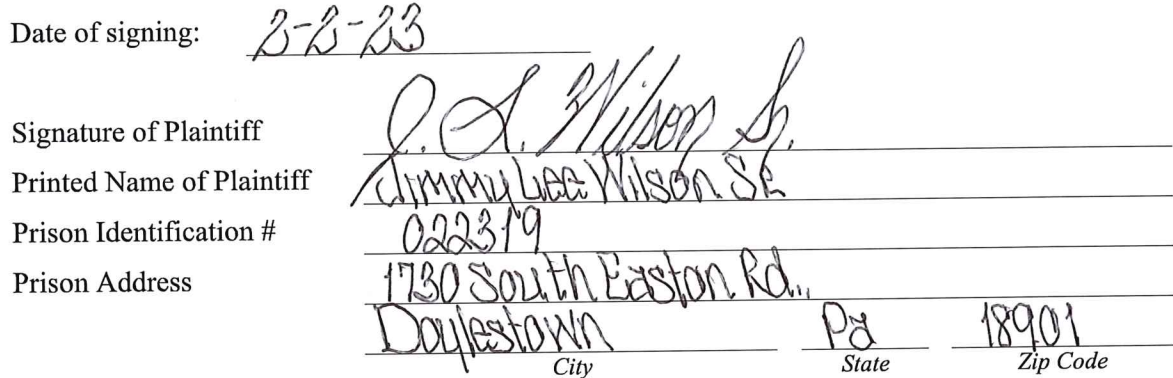 Date of signing: 2-2-23
Signature of Plaintiff J. L. Wilson Sr.
Printed Name of Plaintiff Jimmy Lee Wilson SR
Prison Identification # 022319
Prison Address 1730 South Easton Rd.,
Doylestown Pa 18901
City State Zip Code